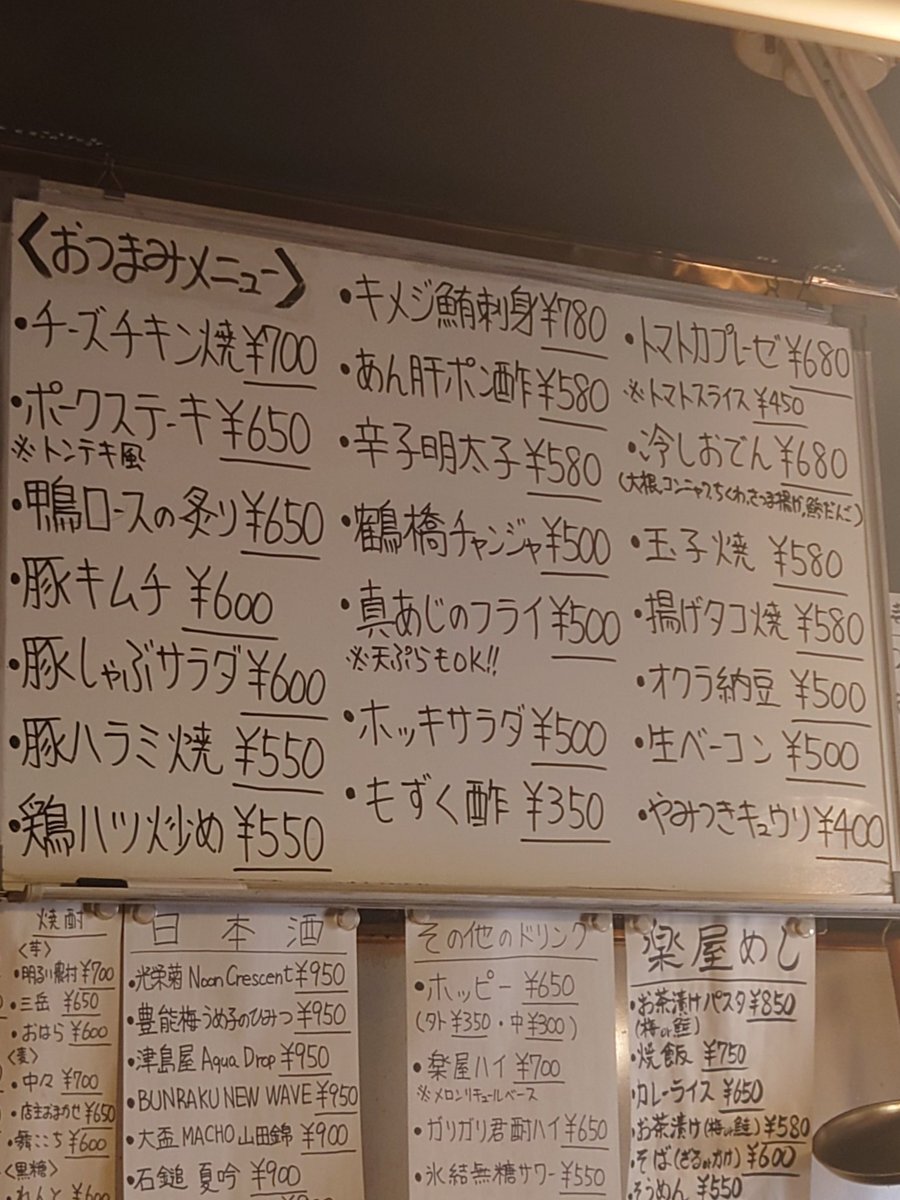 〈おつまみメニュー〉
・チーズチキン焼¥700
・ポークステーキ¥650
※トンテキ風
・鴨ロースの炙り¥650
・豚キムチ ¥600
・豚しゃぶサラダ¥600
・豚ハラミ焼 ¥550
・鶏ハツ炒め ¥550
・キメジ鮪刺身¥780
・あん肝ポン酢¥580
・辛子明太子¥580
・鶴橋チャンジャ¥500
・真あじのフライ¥500
※天ぷらもOK!!
・ホッキサラダ¥500
・もずく酢 ¥350
・トマトカプレーゼ¥680
※トマトスライス¥450
・冷しおでん¥680
(大根,コンニャク,ちくわ,さつま揚げ,鯵だんご)
・玉子焼 ¥580
・揚げタコ焼 ¥580
・オクラ納豆 ¥500
・生ベーコン ¥500
・やみつきキュウリ¥400
焼酎
〈芋〉
・明るい農村¥700
・三岳 ¥650
・おはら ¥600
〈麦〉
・中々 ¥700
・店主おまかせ¥650
・舞ここち ¥600
〈黒糖〉
・れんと ¥600
日本酒
・光栄菊 Noon Crescent¥950
・豊能梅うめ子のひみつ ¥950
・津島屋 Aqua Drop ¥950
・BUNRAKU NEW WAVE ¥950
・大盃 MACHO 山田錦 ¥900
・石鎚 夏吟 ¥900
その他のドリンク
・ホッピー ¥650
(外¥350・中¥300)
・楽屋ハイ ¥700
※メロンリキュールベース
・ガリガリ君酎ハイ ¥650
・氷結無糖サワー ¥550
楽屋めし
・お茶漬けパスタ¥850
(梅or鮭)
・焼飯 ¥750
・カレーライス ¥650
・お茶漬け(梅or鮭)¥580
・そば(ざるorかけ) ¥600
・そうめん ¥550